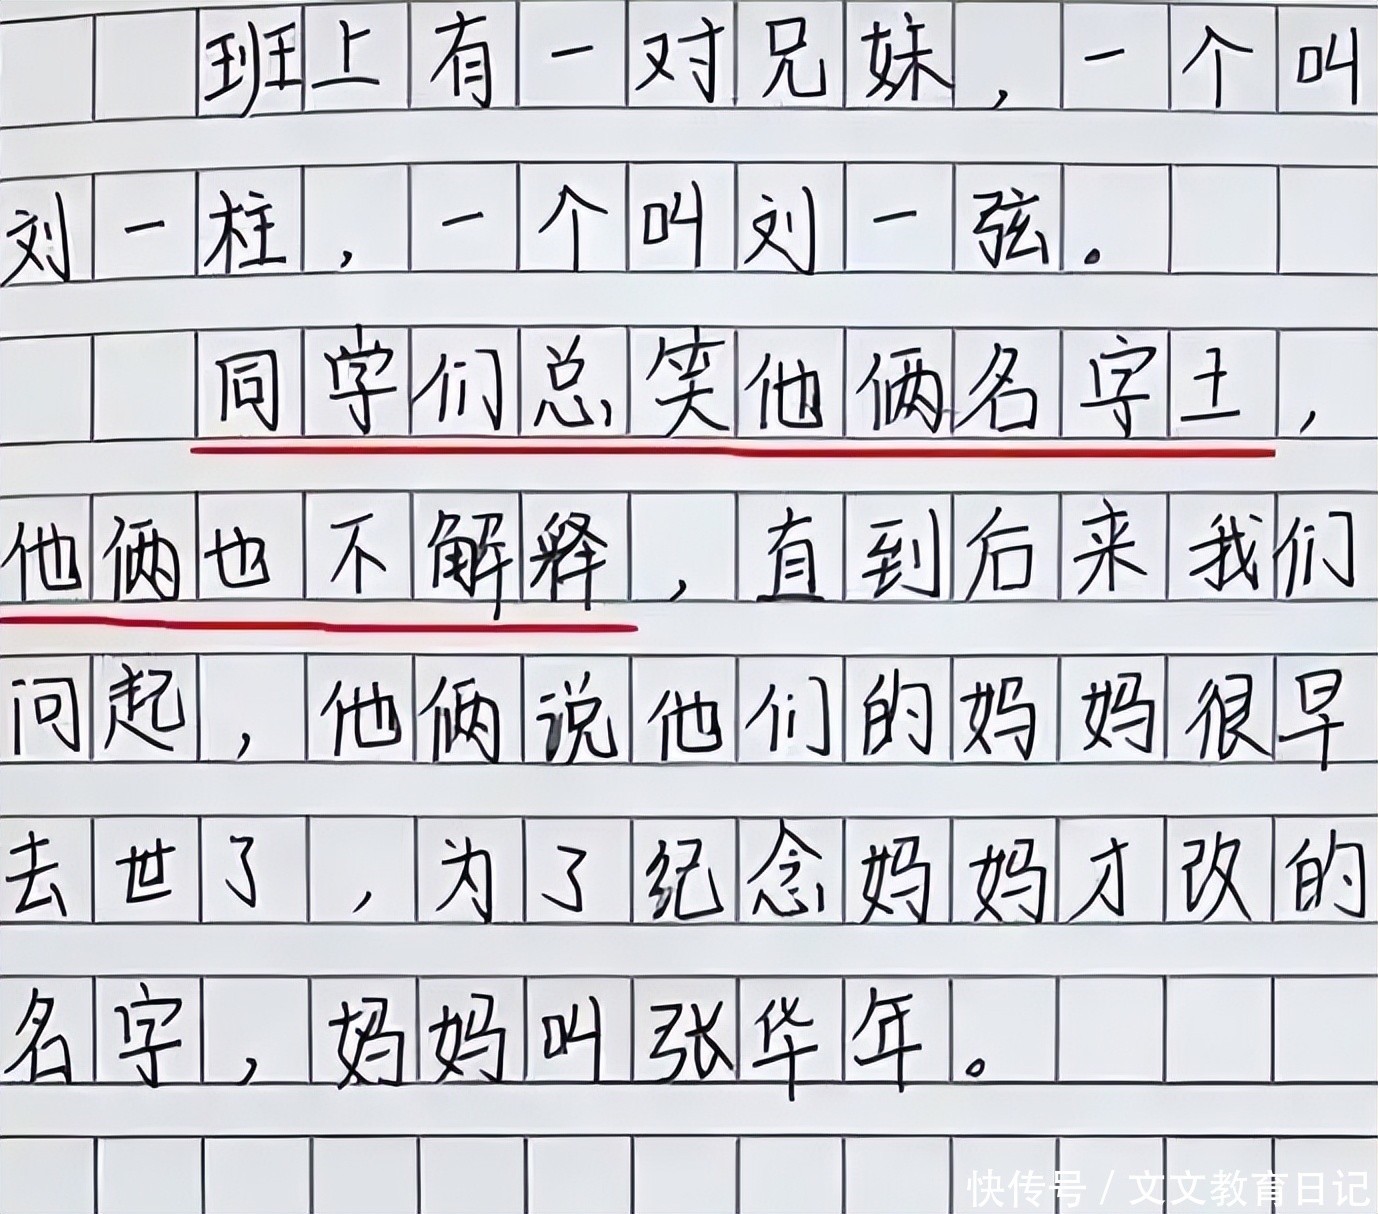 班上有一对兄妹，一个叫
刘一柱，一个叫刘一弦。
同学们总笑他俩名字土，
他俩也不解释，直到后来我们
问起，他俩说他们的妈妈很早
去世了，为了纪念妈妈才改的
名字，妈妈叫张华年。
快传号/文文教育日记